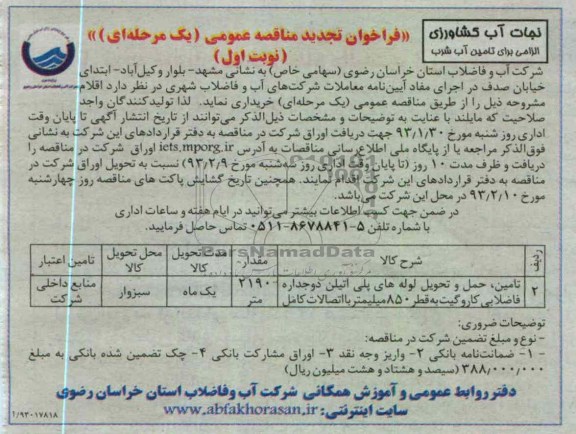 نجات آب کشاورزی
الزامی برای تامین آب شرب
«فراخوان تجدید مناقصه عمومی (یک مرحله‌ای)»
(نوبت اول)
شرکت آب و فاضلاب استان خراسان رضوی (سهامی خاص) به نشانی مشهد- بلوار وکیل‌آباد- ابتدای
خیابان صدف در اجرای مفاد آیین‌نامه معاملات شرکت‌های آب و فاضلاب شهری در نظر دارد اقلام
مشروحه ذیل را از طریق مناقصه عمومی (یک مرحله‌ای) خریداری نماید. لذا تولیدکنندگان واجد
صلاحیت که مایلند با عنایت به توضیحات و مشخصات ذیل‌الذکر می‌توانند از تاریخ انتشار آگهی تا پایان وقت
اداری روز شنبه مورخ ۹۳/۱/۳۰ جهت دریافت اوراق شرکت در مناقصه به دفتر قراردادهای این شرکت به نشانی
فوق‌الذکر مراجعه یا از پایگاه ملی اطلاع رسانی مناقصات به آدرس iets.mporg.ir اوراق شرکت در مناقصه را
دریافت و ظرف مدت ۱۰ روز (تا پایان وقت اداری روز سه‌شنبه مورخ ۹۳/۲/۹) نسبت به تحویل اوراق شرکت در
مناقصه به دفتر قراردادهای این شرکت اقدام نمایند. همچنین تاریخ گشایش پاکت های مناقصه روز چهارشنبه
مورخ ۹۳/۲/۱۰ در محل این شرکت می‌باشد.
در ضمن جهت کسب اطلاعات بیشتر می‌توانید در ایام هفته و ساعات اداری
با شماره تلفن ۵-۸۶۷۸۸۴۱-۰۵۱۱ تماس حاصل فرمایید.
ParsNamadData
ردیف شرح کالا مقدار- مدت تحویل کالا محل تحویل کالا تامین اعتبار
۲ تامین، حمل و تحویل لوله های پلی اتیلن دوجداره فاضلابی کاروگیت به قطر ۸۵۰ میلیمتر با اتصالات کامل ۲۱۹۰- متر یک ماه سبزوار منابع داخلی شرکت
توضیحات ضروری:
- نوع و مبلغ تضمین شرکت در مناقصه:
- ۱- ضمانت‌نامه بانکی ۲- واریز وجه نقد ۳- اوراق مشارکت بانکی ۴- چک تضمین شده بانکی به مبلغ
۳۸۸/۰۰۰/۰۰۰ (سیصد و هشتاد و هشت میلیون ریال)
دفتر روابط عمومی و آموزش همگانی شرکت آب وفاضلاب استان خراسان رضوی
سایت اینترنتی: www.abfakhorasan.ir
۱/۹۳۰۱۷۸۱۸